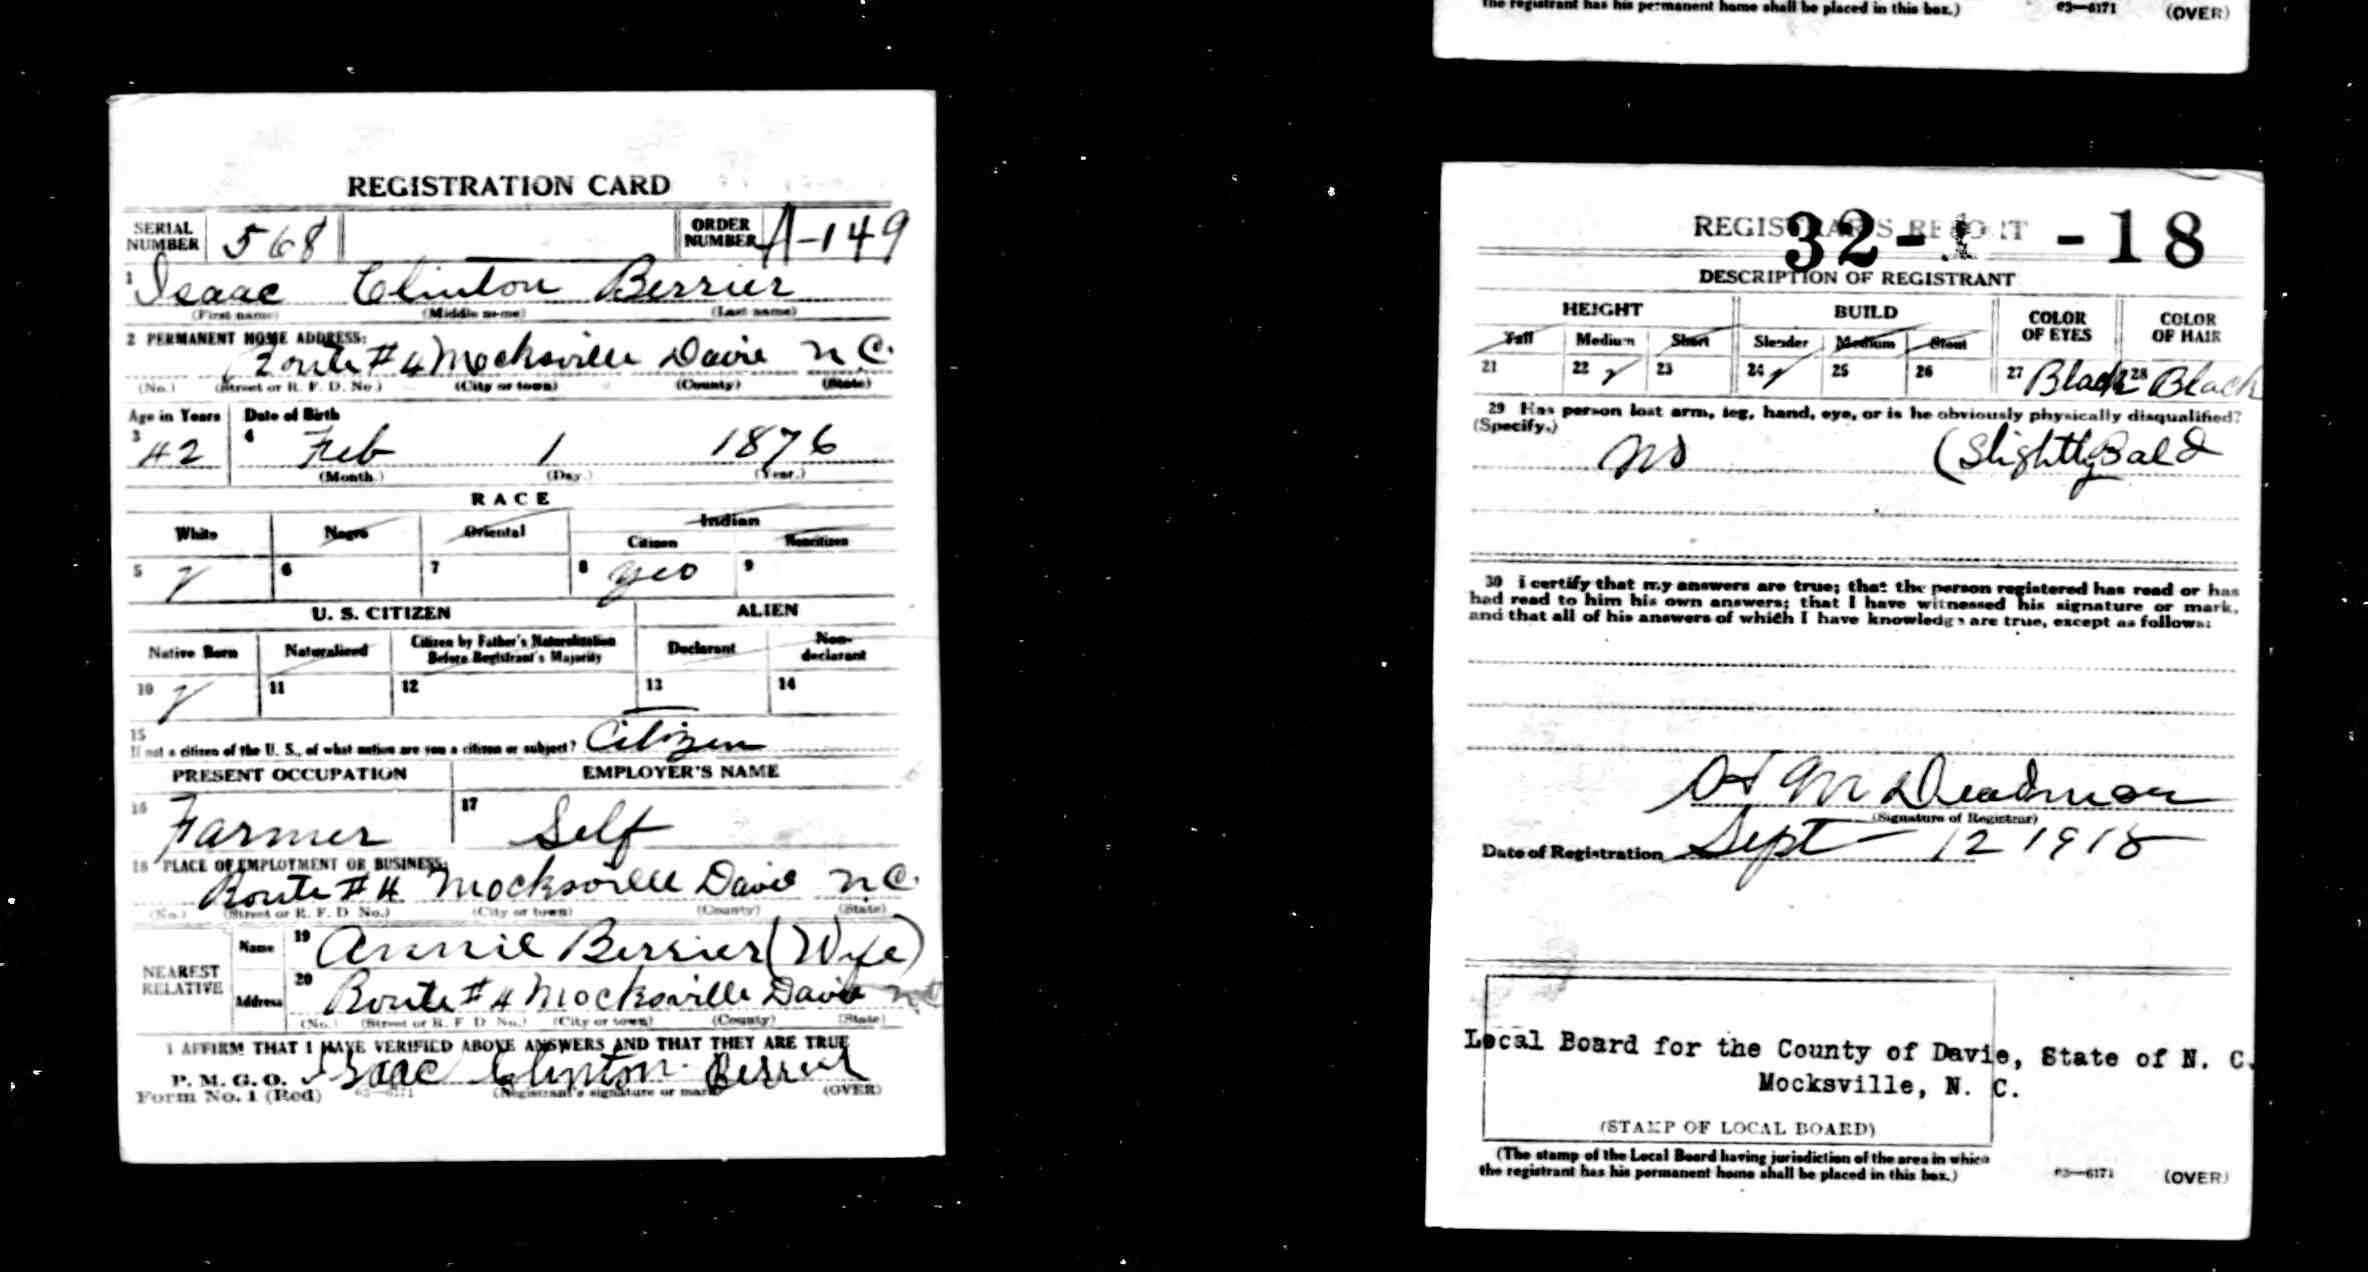 the registrant has his permanent home shall be placed in this box.) 63—6171 (OVER)
REGISTRATION CARD
SERIAL NUMBER 568 ORDER NUMBER A-149
1 Isaac Clinton Berrier
(First name) (Middle name) (Last name)
2 PERMANENT HOME ADDRESS:
Route # 4 Mocksville Davie N C.
(No.) (Street or R. F. D. No.) (City or town) (County) (State)
Age in Years Date of Birth
3 42 4 Feb 1 1876
(Month.) (Day.) (Year.)
RACE
White Negro Oriental Indian
Citizen Noncitizen
5 6 7 8 yes 9
U. S. CITIZEN ALIEN
Native Born Naturalized Citizen by Father's Naturalization Before Registrant's Majority Declarant Non-declarant
10 11 12 13 14
15
If not a citizen of the U. S., of what nation are you a citizen or subject? Citizen
PRESENT OCCUPATION EMPLOYER'S NAME
16 Farmer 17 Self
18 PLACE OF EMPLOYMENT OR BUSINESS:
Route # 4 Mocksville Davie N C.
(No.) (Street or R. F. D No.) (City or town) (County) (State)
NEAREST RELATIVE
Name 19 Annie Berrier (Wife)
Address 20 Route # 4 Mocksville Davie NC
(No.) (Street or R. F D No.) (City or town) (County) (State)
I AFFIRM THAT I HAVE VERIFIED ABOVE ANSWERS AND THAT THEY ARE TRUE
P. M. G. O. Isaac Clinton Berrier
Form No. 1 (Red) 63—6171 (Registrant's signature or mark) (OVER)
REGISTRAR'S REPORT
32- -18
DESCRIPTION OF REGISTRANT
HEIGHT BUILD COLOR OF EYES COLOR OF HAIR
Tall Medium Short Slender Medium Stout
21 22 23 24 25 26 27 Black 28 Black
29 Has person lost arm, leg, hand, eye, or is he obviously physically disqualified?
(Specify.)
No (Slightly Bald
30 I certify that my answers are true; that the person registered has read or has
had read to him his own answers; that I have witnessed his signature or mark,
and that all of his answers of which I have knowledge are true, except as follows:
M Deadmon
(Signature of Registrar)
Date of Registration Sept 12 1918
Local Board for the County of Davie, State of N. C.
Mocksville, N. C.
(STAMP OF LOCAL BOARD)
(The stamp of the Local Board having jurisdiction of the area in which
the registrant has his permanent home shall be placed in this box.) 63—6171 (OVER)